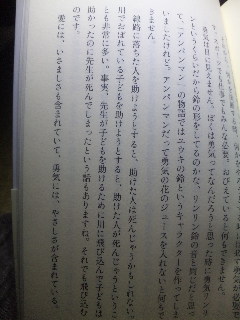 勇気は目に見えません。
どんな姿勢、お
どうして鈴の形をしてるのかな。リンリン鈴の音と同じだっ
ぼくは勇気ってなんだろうと思った時に勇気リンリ
て、『アンパンマン』の物語ではユウキの鈴というキャラクターを作ってしま
いましたけれど、アンパンマンだって勇気の花のジュースを入れないと何もで
きません。
線路に落ちた人を助けようとすると、助けた人は死んじゃうかもしれない。
川でおぼれている子どもを助けようとすると、助けた人が死んじゃうというこ
とも非常に多い。事実、先生が子どもを助けるために川に飛び込んで子どもは
助かったのに先生が死んでしまったという話もありますね。それでも飛び込む
のです。
愛には、いさましさも含まれていて、勇気には、やさしさが含まれている。